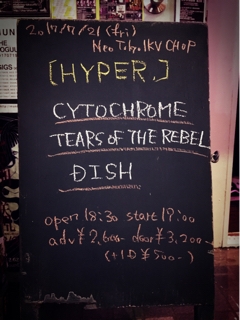 2017/7/21 (fri)
[HYPER.]
CYTOCHROME
TEARS OF THE REBEL
DISH
open 18:30 start 19:00
adv ¥2,600- door ¥3,200-
(+1D ¥500-)